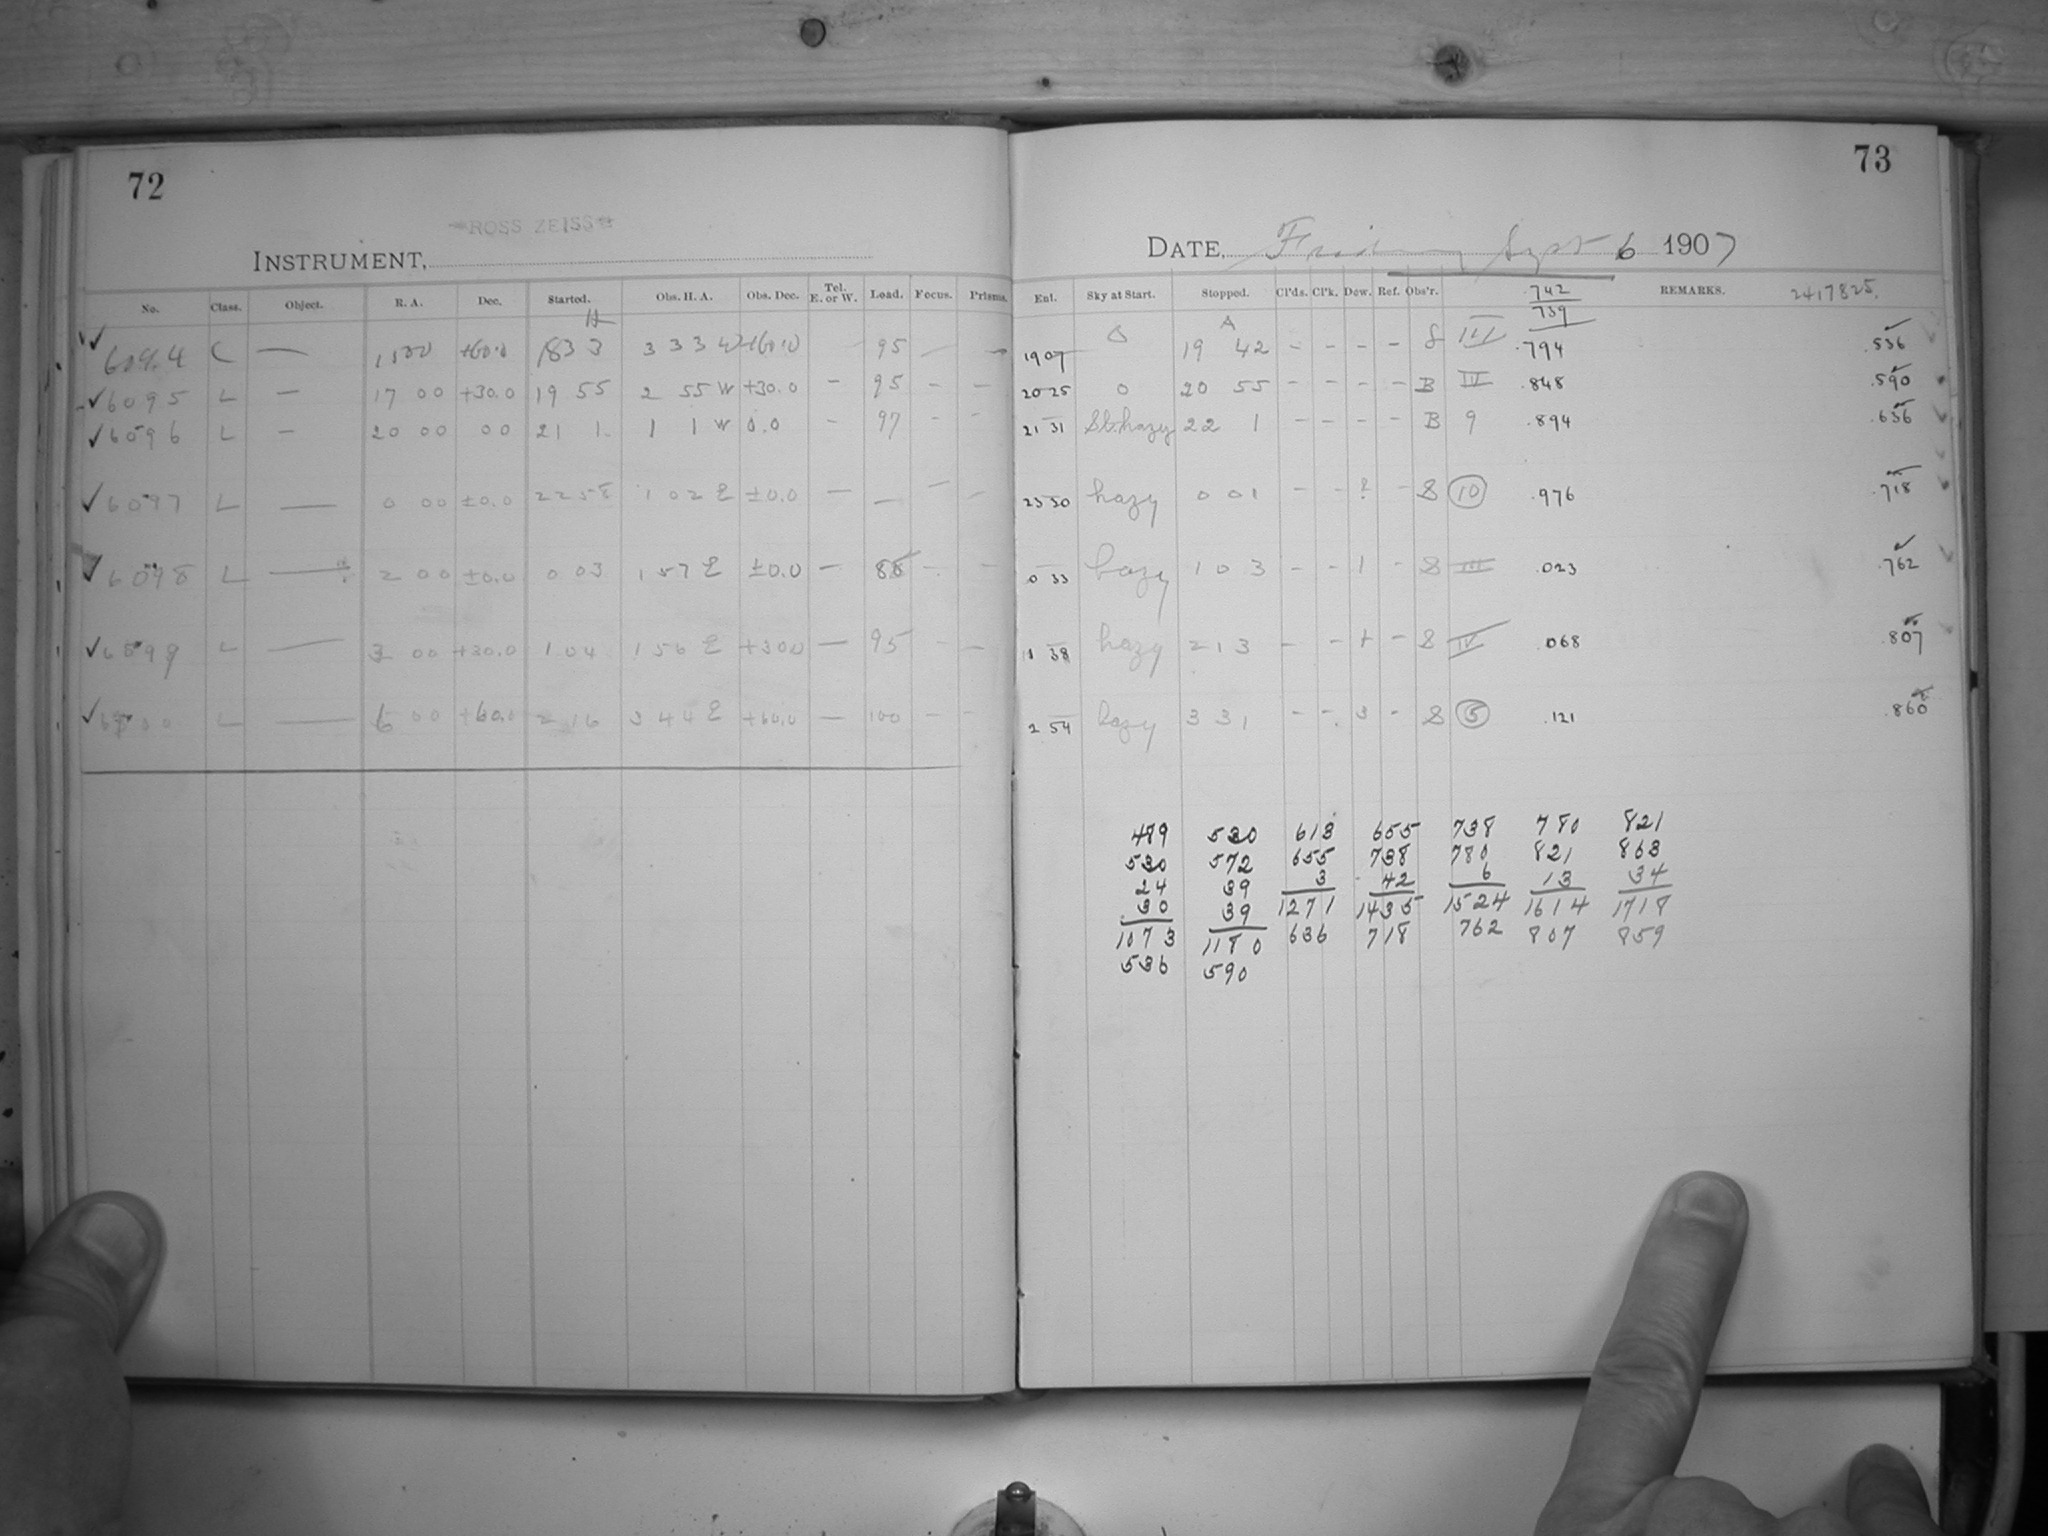 72
ROSS ZEISS
INSTRUMENT,
No. Class. Object. R. A. Dec. Started. Obs. H. A. Obs. Dec. Tel. E. or W. Load. Focus. Prisms.
6094 L — 1500 +60.0 1833 3 33 W +60.0 — 95 — —
6095 L — 17 00 +30.0 19 55 2 55 W +30.0 — 95 — —
6096 L — 20 00 0 0 21 1 1 1 W 0.0 — 97 - -
6097 L — 0 00 ±0.0 2258 1 02 E ±0.0 — — — —
6098 L — 2 00 ±0.0 0 03 1 57 E ±0.0 — 88 - -
6099 L — 3 00 +30.0 1 04 1 56 E +30.0 — 95 - —
L — 6 00 +60.0 2 16 3 44 E +60.0 — 100 - -
73
DATE, Friday Sept 6 1907
Ent. Sky at Start. Stopped. Cl'ds. Cl'k. Dew. Ref. Obs'r. 742 REMARKS. 2417825.
739
1907 0 19 42 - - - - S III .794 .536
2025 0 20 55 - - - - B IV .848 .590
21 31 Sl. hazy 22 1 - - - - B 9 .894 .636
2330 hazy 0 01 - - 2 - S 10 .976 .718
0 33 hazy 1 03 - - 1 - S III .023 .762
1 38 hazy 2 13 - - + - S IV .068 .807
2 54 hazy 3 31 - - 3 - S 5 .121 .860
489 530 613 655 738 780 821
530 572 655 738 780 821 863
24 39 3 42 6 13 34
30 39 1271 1435 1524 1614 1718
1073 1180 636 718 762 807 859
536 590